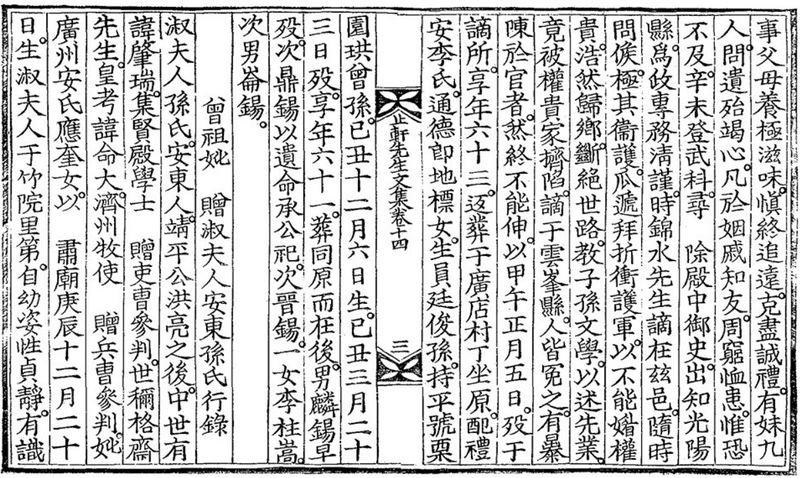 事父母養極滋味愼終追遠克盡誠禮有妹九
人問遺殆竭心凡於姻戚知友周窮恤患惟恐
不及辛未登武科尋 除殿中御史出知光陽
縣爲政專務淸謹時錦水先生謫在玆邑隨時
問候極其衛護瓜遞拜折衝護軍以不能媚權
貴浩然歸鄕斷絶世路教子孫文學以述先業
竟被權貴家擠陷謫于雲峯縣人皆寃之有暴
陳於官者然終不能伸以甲午正月五日歿于
謫所享年六十三返葬于廣店村丁坐原配禮
安李氏通德郞地標女生員廷俊孫持平號栗
止軒先生文集卷十四
三
園珙曾孫己丑十二月六日生己丑三月二十
三日歿享年六十一葬同原而在後男麟錫早
歿次鼎錫以遺命承公祀次晉錫一女李柱嵩
次男崙錫
曾祖妣 贈淑夫人安東孫氏行錄
淑夫人孫氏安東人靖平公洪亮之後中世有
諱肇瑞集賢殿學士 贈吏曹參判世稱格齋
先生皇考諱命大濟州牧使 贈兵曹參判妣
廣州安氏應奎女以 肅廟庚辰十二月二十
日生淑夫人于竹院里第自幼姿性貞靜有識